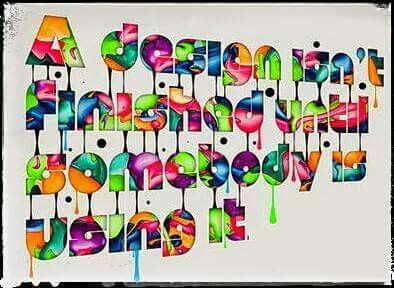 A design isn't
finished until
somebody is
using it.